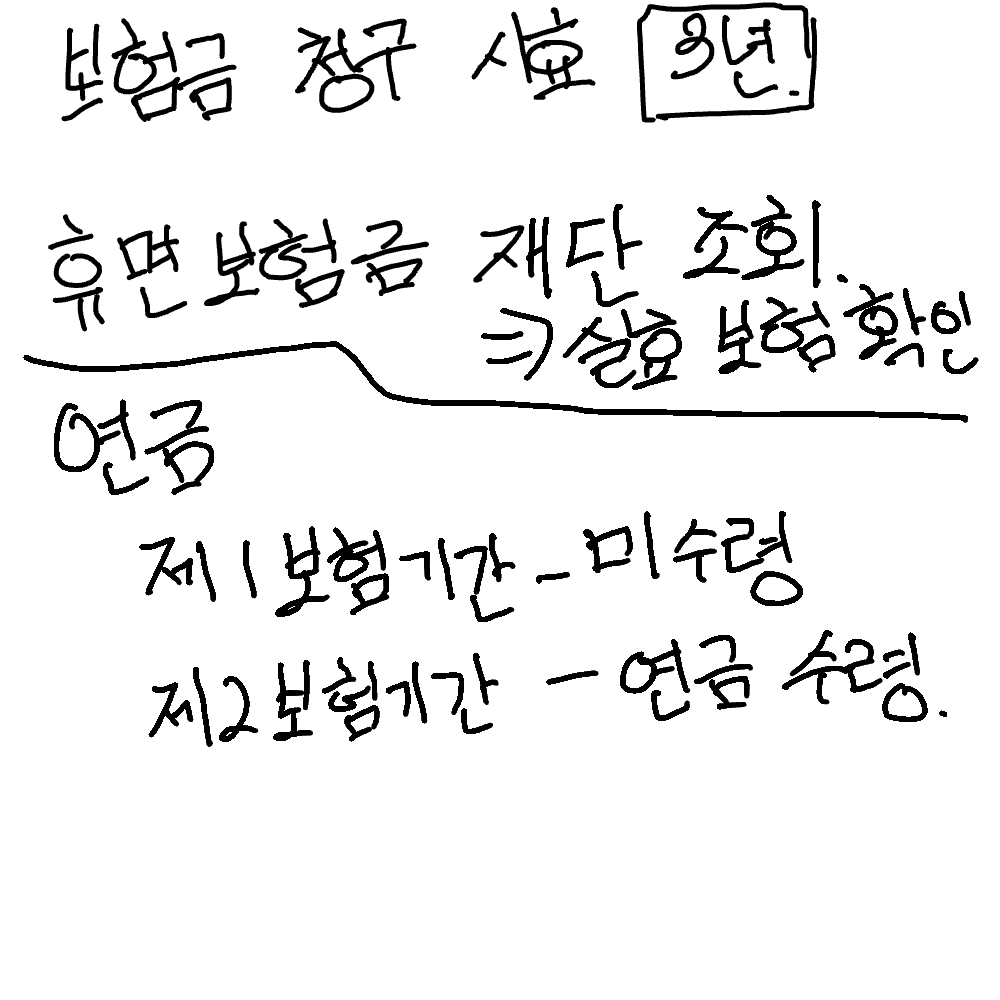 보험금 청구 시효 3년.
휴면보험금 재단 조회.
⇒ 실효 보험 확인
연금
제1보험기간 - 미수령
제2보험기간 - 연금 수령.